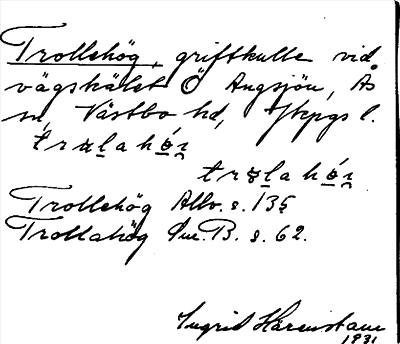 Trollehög, griftkulle vid
vägskälet Ö Angsjön, Ås
sn, Västbo hd, Jkpgs l.
trɷlahöɪ
trɷlahöɪ
Trollehög Allv. s. 135
Trollahög Öne. B. s. 62.
Ingrid Härenstam
1931